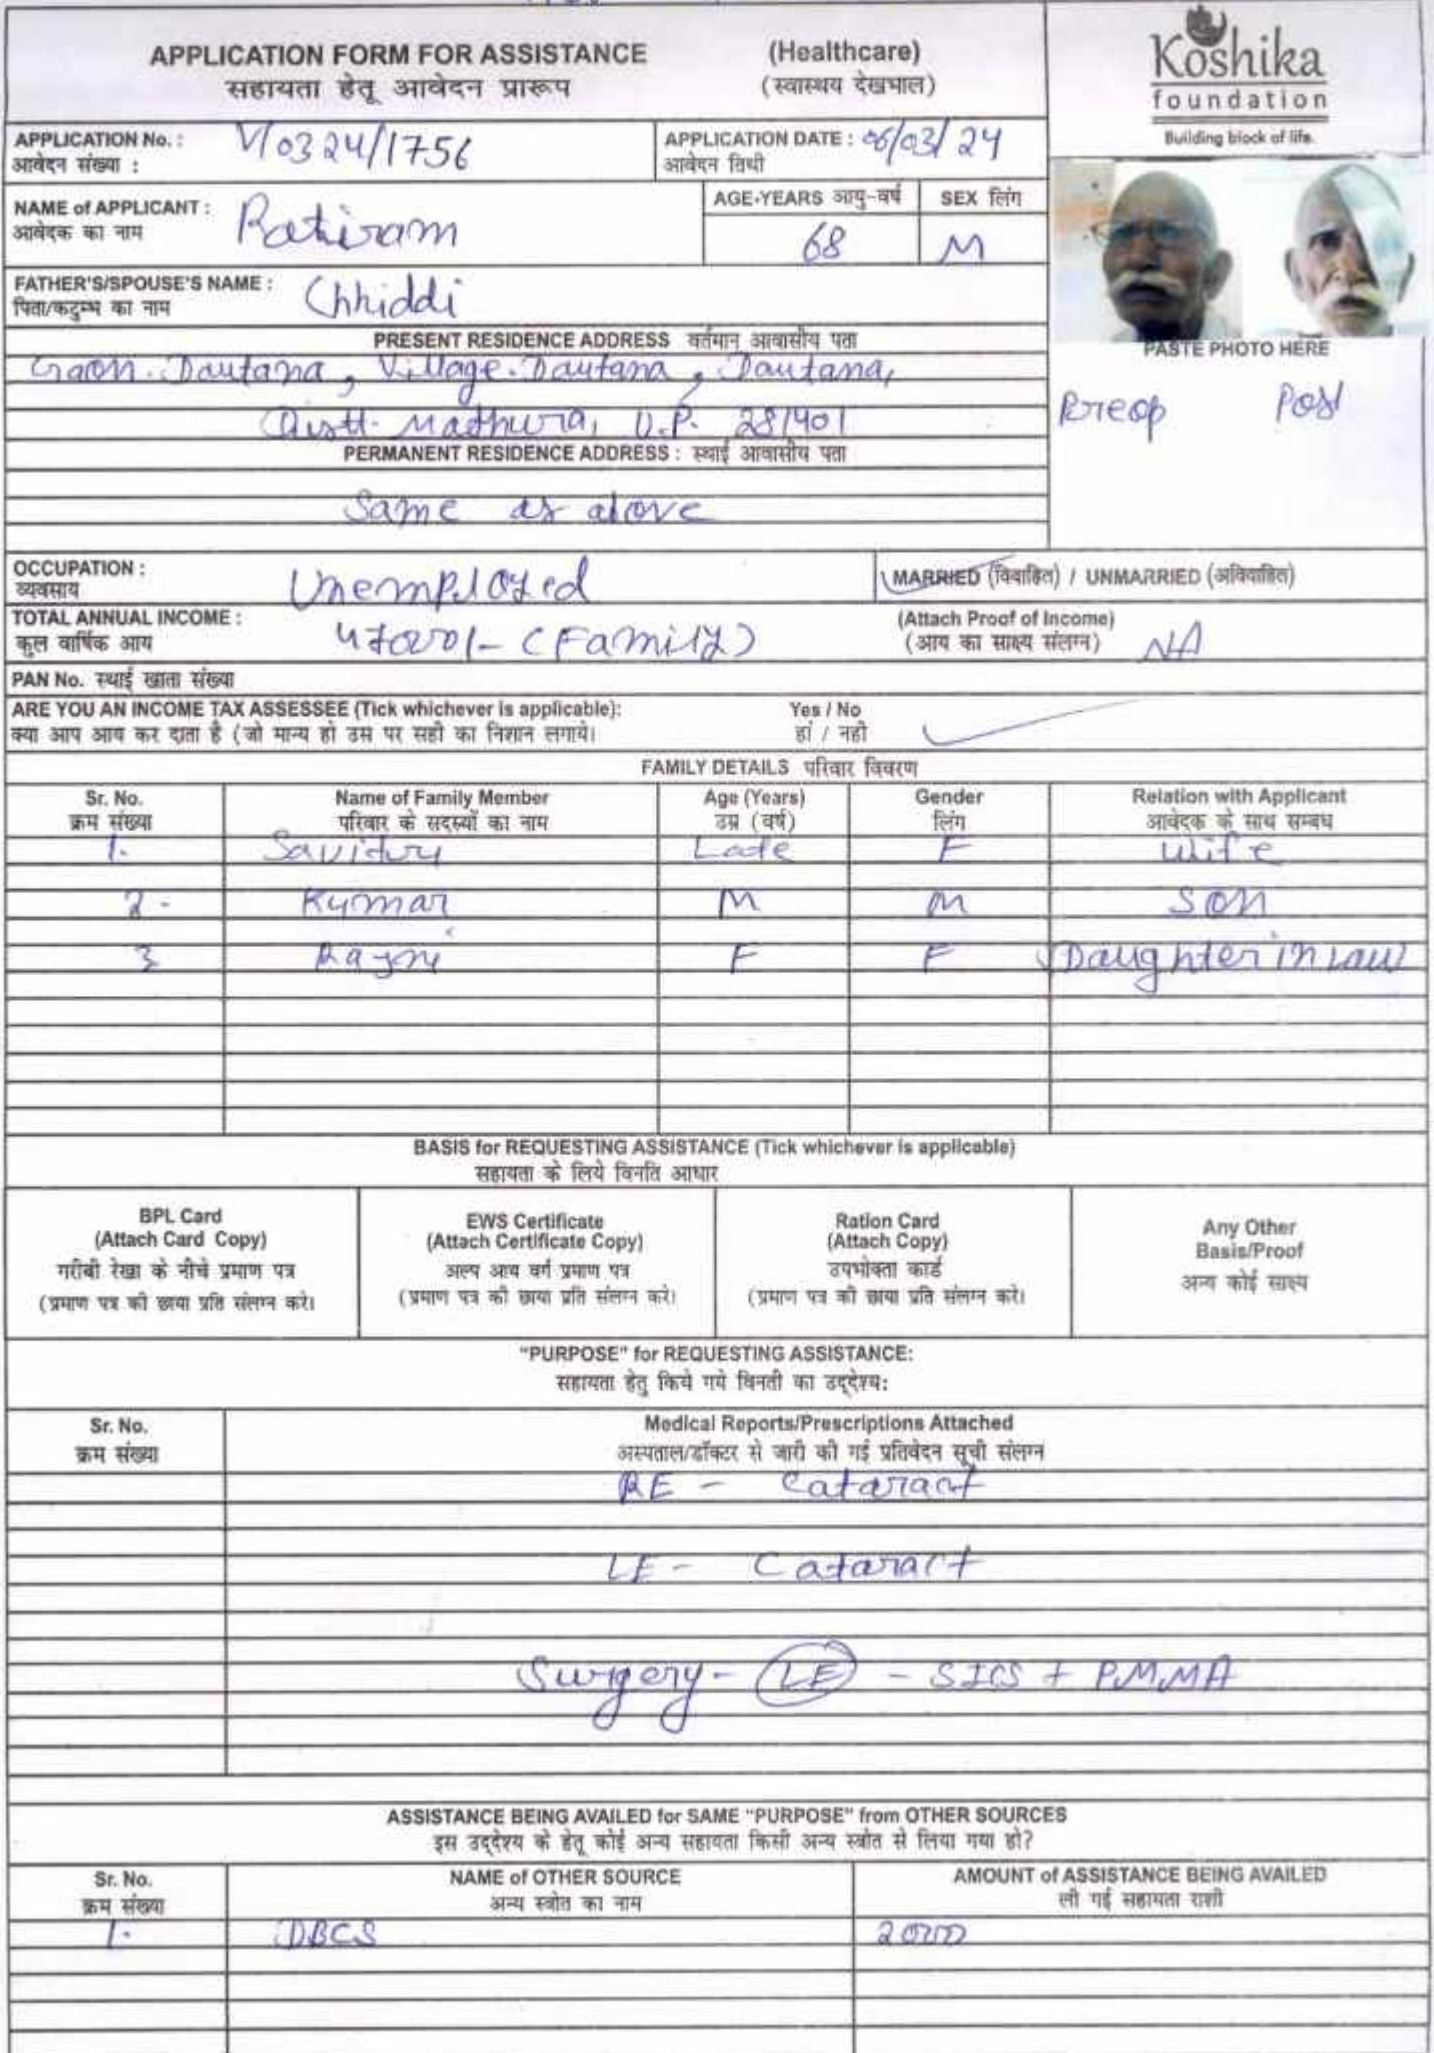 APPLICATION FORM FOR ASSISTANCE (Healthcare)
सहायता हेतू आवेदन प्रारूप (स्वास्थय देखभाल)
Koshika
foundation
Building block of life.
APPLICATION No. : V/0324/1756
आवेदन संख्या :
APPLICATION DATE : 06/03/24
आवेदन तिथी
NAME of APPLICANT : Ratiram
आवेदक का नाम
AGE-YEARS आयु-वर्ष 68
SEX लिंग M
FATHER'S/SPOUSE'S NAME : Chhiddi
पिता/कटुम्भ का नाम
PRESENT RESIDENCE ADDRESS वर्तमान आवासीय पता
Gaon. Dautana, Village. Dautana, Dautana,
Distt. Mathura, U.P. 281401
PERMANENT RESIDENCE ADDRESS : स्थाई आवासीय पता
Same as above
PASTE PHOTO HERE
Preop Post
OCCUPATION : Unemployed
व्यवसाय
MARRIED (विवाहित) / UNMARRIED (अविवाहित)
TOTAL ANNUAL INCOME : 47000/- (Family)
कुल वार्षिक आय
(Attach Proof of Income) NA
(आय का साक्ष्य संलग्न)
PAN No. स्थाई खाता संख्या
ARE YOU AN INCOME TAX ASSESSEE (Tick whichever is applicable): Yes / No
क्या आप आय कर दाता है (जो मान्य हो उस पर सही का निशान लगाये। हां / नही
FAMILY DETAILS परिवार विवरण
Sr. No. Name of Family Member Age (Years) Gender Relation with Applicant
क्रम संख्या परिवार के सदस्यों का नाम उम्र (वर्ष) लिंग आवेदक के साथ सम्बध
1. Savitry Late F Wife
2. Kumar M M Son
3 Rajni F F Daughter in Law
BASIS for REQUESTING ASSISTANCE (Tick whichever is applicable)
सहायता के लिये विनति आधार
BPL Card
(Attach Card Copy)
गरीबी रेखा के नीचे प्रमाण पत्र
(प्रमाण पत्र की छाया प्रति संलग्न करे।
EWS Certificate
(Attach Certificate Copy)
अल्प आय वर्ग प्रमाण पत्र
(प्रमाण पत्र की छाया प्रति संलग्न करे।
Ration Card
(Attach Copy)
उपभोक्ता कार्ड
(प्रमाण पत्र की छाया प्रति संलग्न करे।
Any Other
Basis/Proof
अन्य कोई साक्ष्य
"PURPOSE" for REQUESTING ASSISTANCE:
सहायता हेतु किये गये विनती का उद्देश्य:
Sr. No. Medical Reports/Prescriptions Attached
क्रम संख्या अस्पताल/डॉक्टर से जारी की गई प्रतिवेदन सूची संलग्न
RE - Cataract
LE - Cataract
Surgery - LE - SICS + PMMA
ASSISTANCE BEING AVAILED for SAME "PURPOSE" from OTHER SOURCES
इस उद्देश्य के हेतू कोई अन्य सहायता किसी अन्य स्त्रोत से लिया गया हो?
Sr. No. NAME of OTHER SOURCE AMOUNT of ASSISTANCE BEING AVAILED
क्रम संख्या अन्य स्त्रोत का नाम ली गई सहायता राशी
1. DBCS 2000